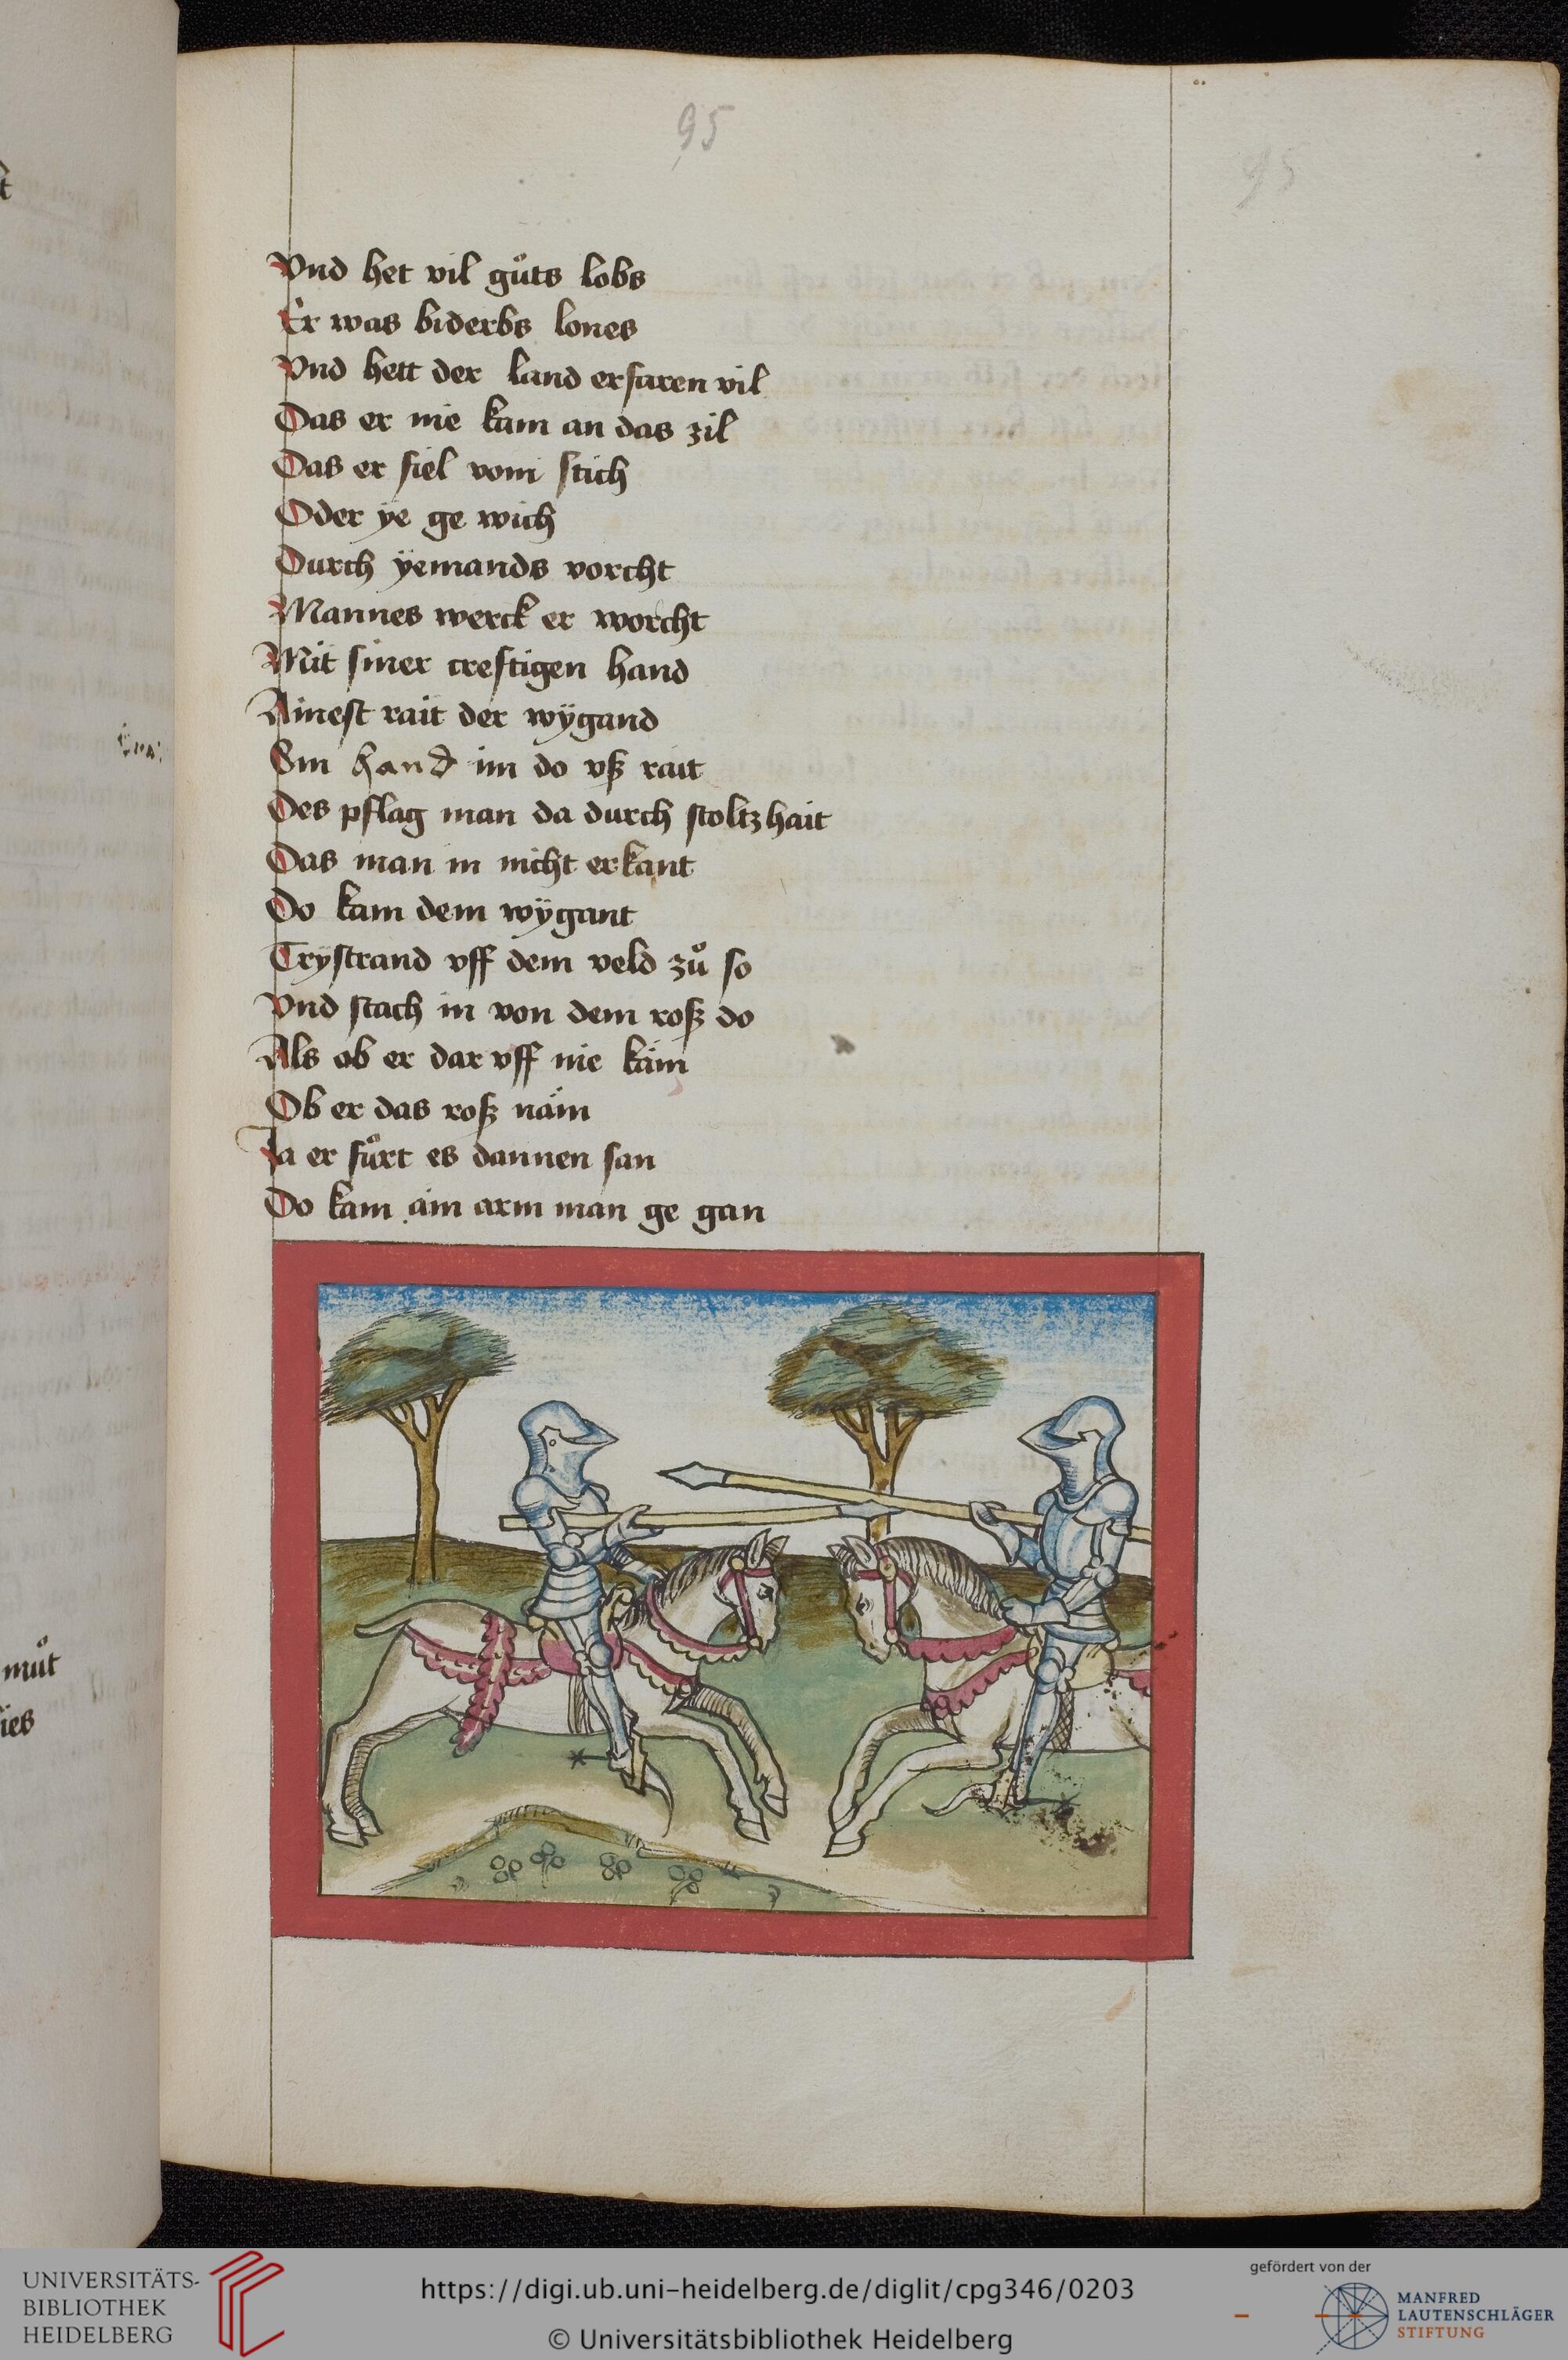 95
95
Vnd het vil gůts lobs
Er was biderbs lones
Vnd hett der land erfaren vil
Das er nie kam an das zil
Das er fiel vom stich
Oder ye ge wich
Durch ÿemands vorcht
Mannes werck er worcht
Mit siner creftigen hand
Ainest rait der wÿgand
Sin hand im do vß rait
Des pflag man da durch stoltzhait
Das man in nicht erkant
Do kam dem wÿgant
Trystrand vff dem veld zů so
Vnd stach in von dem roß do
Als ob er dar vff nie käm
Ob er das roß näm
Ja er fůrt es dannen san
Do kam ain arm man ge gan
můt
UNIVERSITÄTS-
BIBLIOTHEK
HEIDELBERG
https://digi.ub.uni-heidelberg.de/diglit/cpg346/0203
© Universitätsbibliothek Heidelberg
gefördert von der
MANFRED
LAUTENSCHLÄGER
STIFTUNG